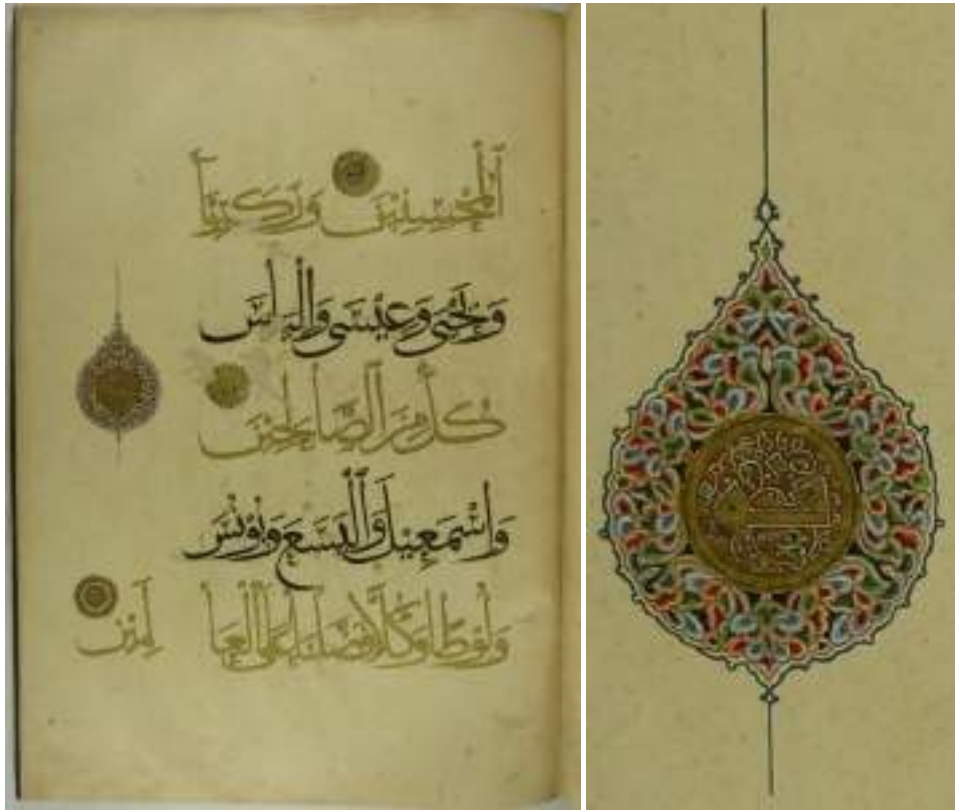 ٱلْمُحْسِنِينَ وَزَكَرِيَّا
وَيَحْيَىٰ وَعِيسَىٰ وَإِلْيَاسَ
كُلٌّ مِنَ ٱلصَّالِحِينَ
وَإِسْمَعِيلَ وَٱلْيَسَعَ وَيُونُسَ
وَلُوطًا وَكُلًّا فَضَّلْنَا عَلَى ٱلْعَا لَمِينَ